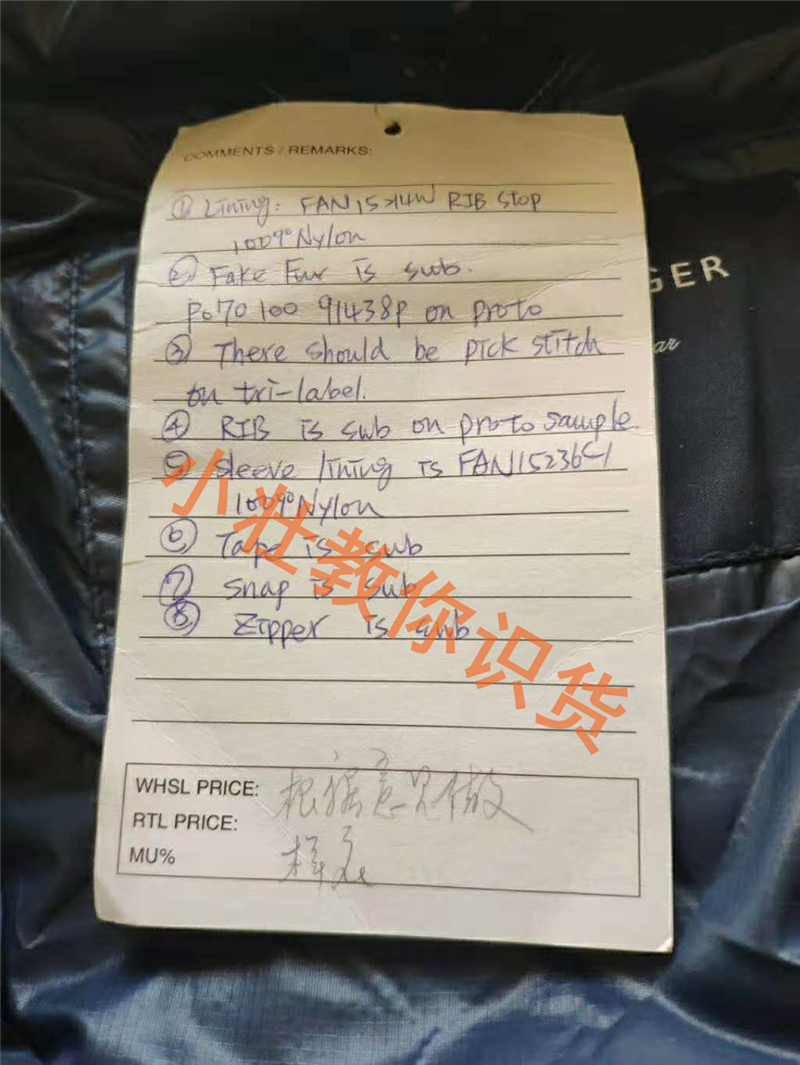 COMMENTS / REMARKS:
① Lining: FAN15214W RIB Stop
100% Nylon
② Fake Fur is sub.
P070100 91438P on proto
③ There should be pick stitch
on tri-label.
④ RIB is sub on proto sample.
⑤ Sleeve lining is FAN15236C1
100% Nylon
⑥ Tape is sub
⑦ Snap is sub
⑧ Zipper is sub
GER
ar
小壮教你识货
WHSL PRICE: 根据意见做
RTL PRICE:
MU% 样衣